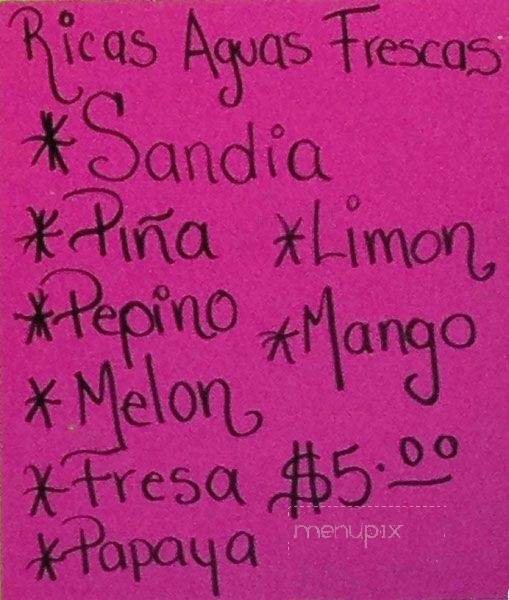 Ricas Aguas Frescas
*Sandia
*Piña *Limon
*Pepino *Mango
*Melon
*Fresa $5.00
menupix
*Papaya